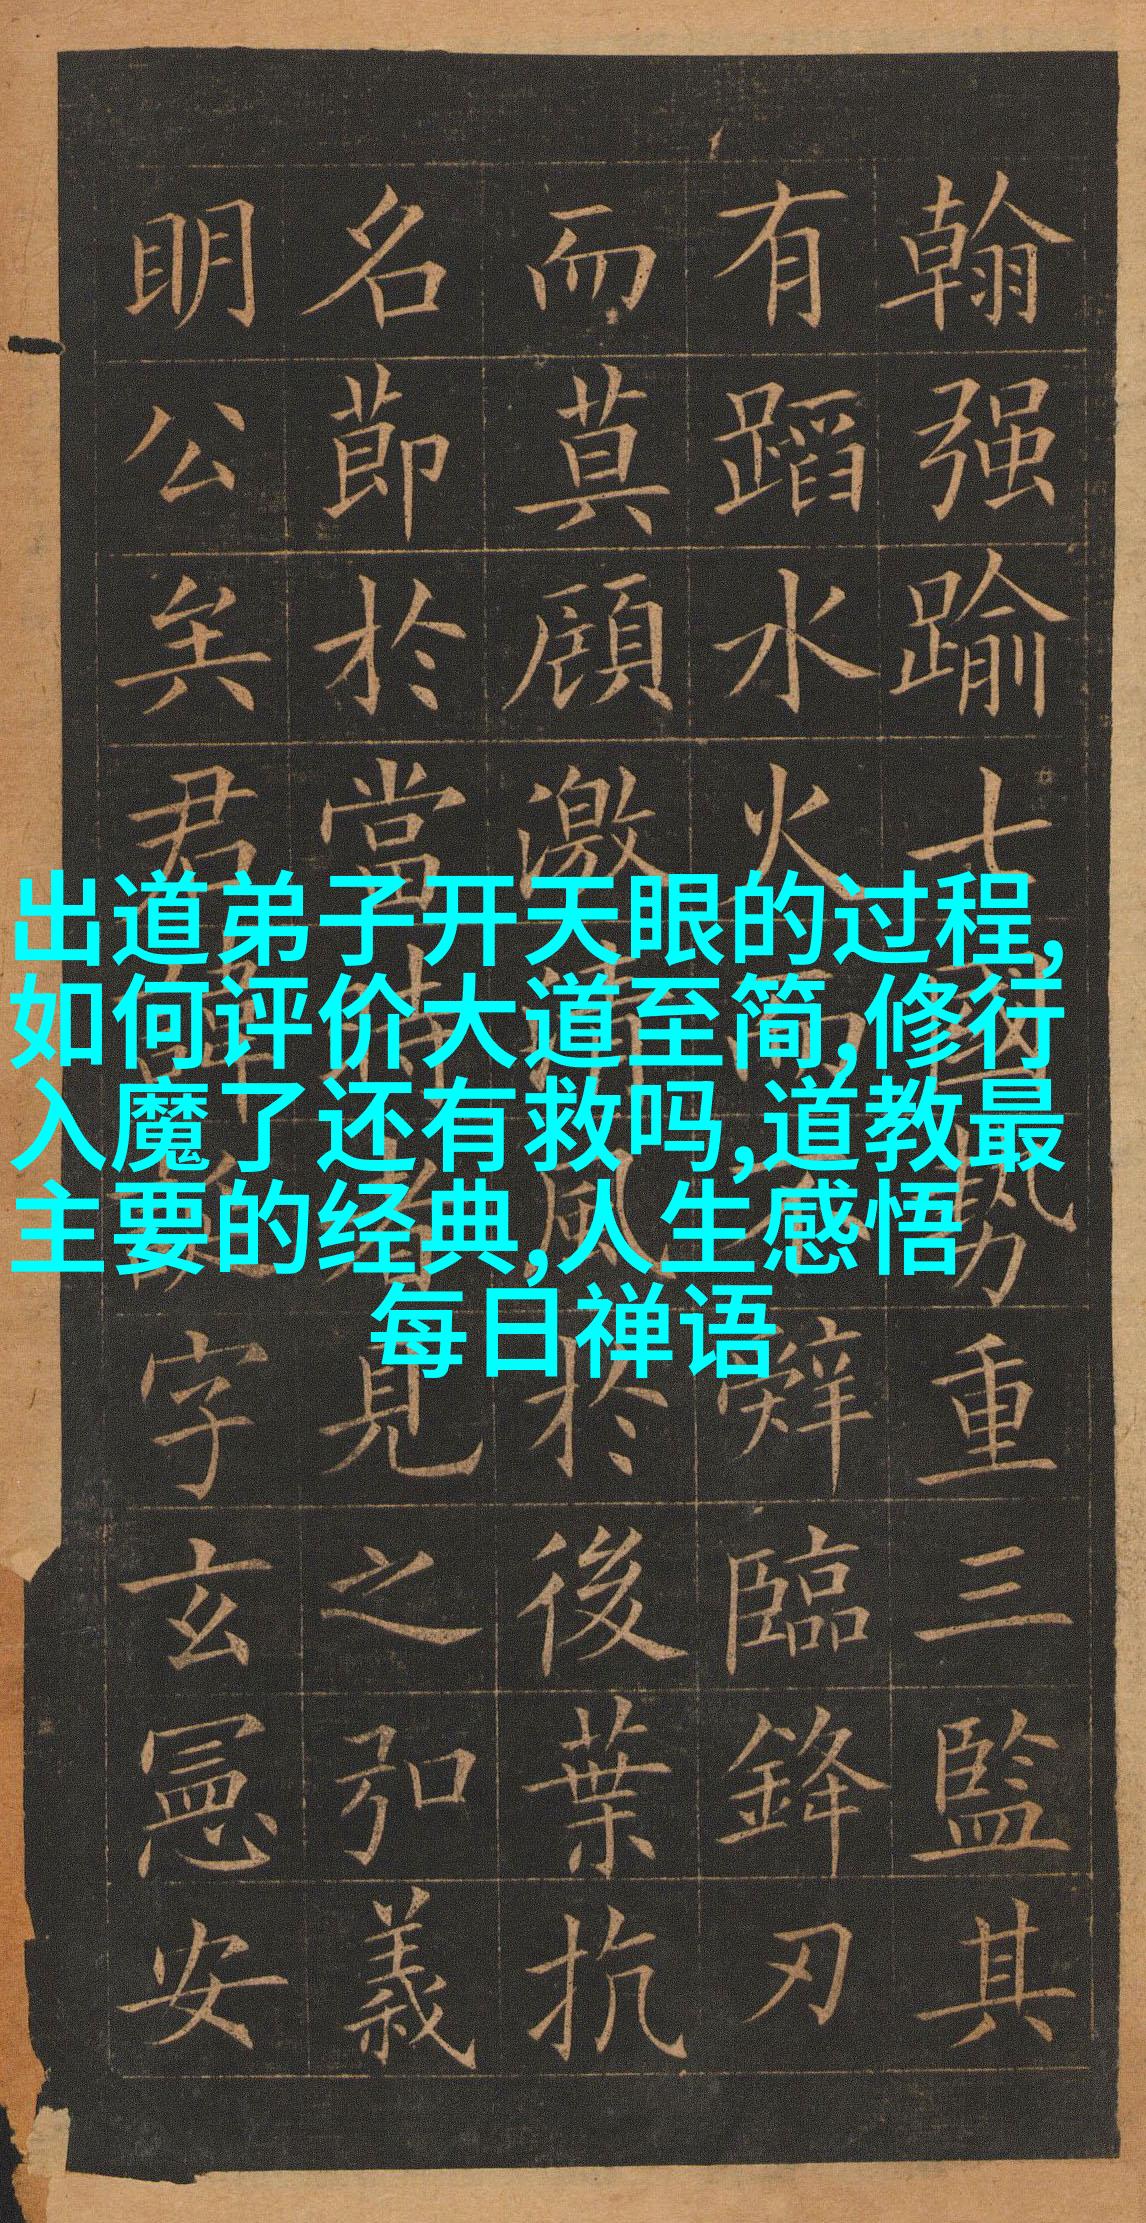 翰强踰七國勢重三監其
有蹈水火而不辤臨鋒刃
而莫顧激清風於後葉抗
名節於當時者見之弘義
明公矣君諱誕字玄憲安
出道弟子开天眼的过程,
如何评价大道至简,修行
入魔了还有救吗,道教最
主要的经典,人生感悟
每日禅语